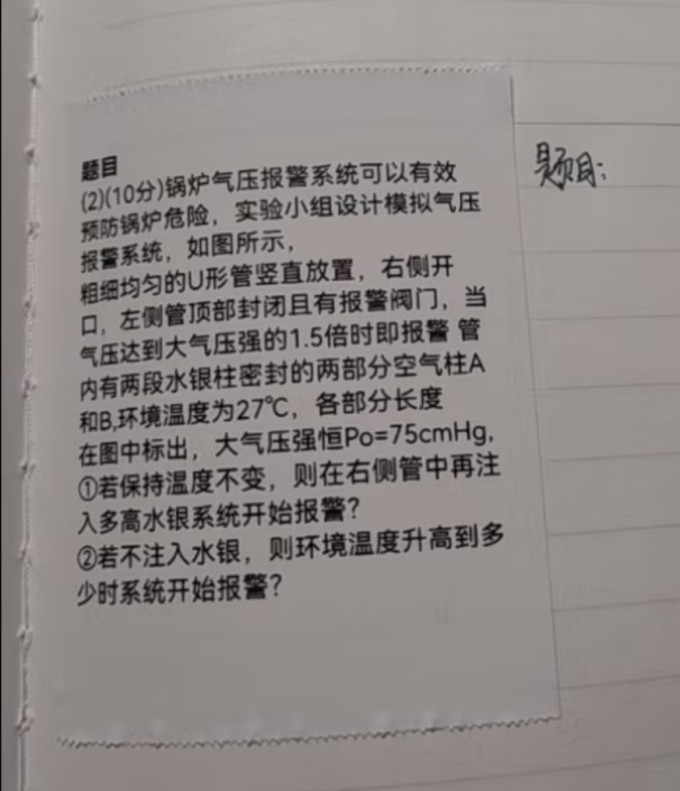 题目
(2)(10分)锅炉气压报警系统可以有效
预防锅炉危险，实验小组设计模拟气压
报警系统，如图所示，
粗细均匀的U形管竖直放置，右侧开
口，左侧管顶部封闭且有报警阀门，当
气压达到大气压强的1.5倍时即报警 管
内有两段水银柱密封的两部分空气柱A
和B,环境温度为27℃，各部分长度
在图中标出，大气压强恒Po=75cmHg,
①若保持温度不变，则在右侧管中再注
入多高水银系统开始报警？
②若不注入水银，则环境温度升高到多
少时系统开始报警？
题目: